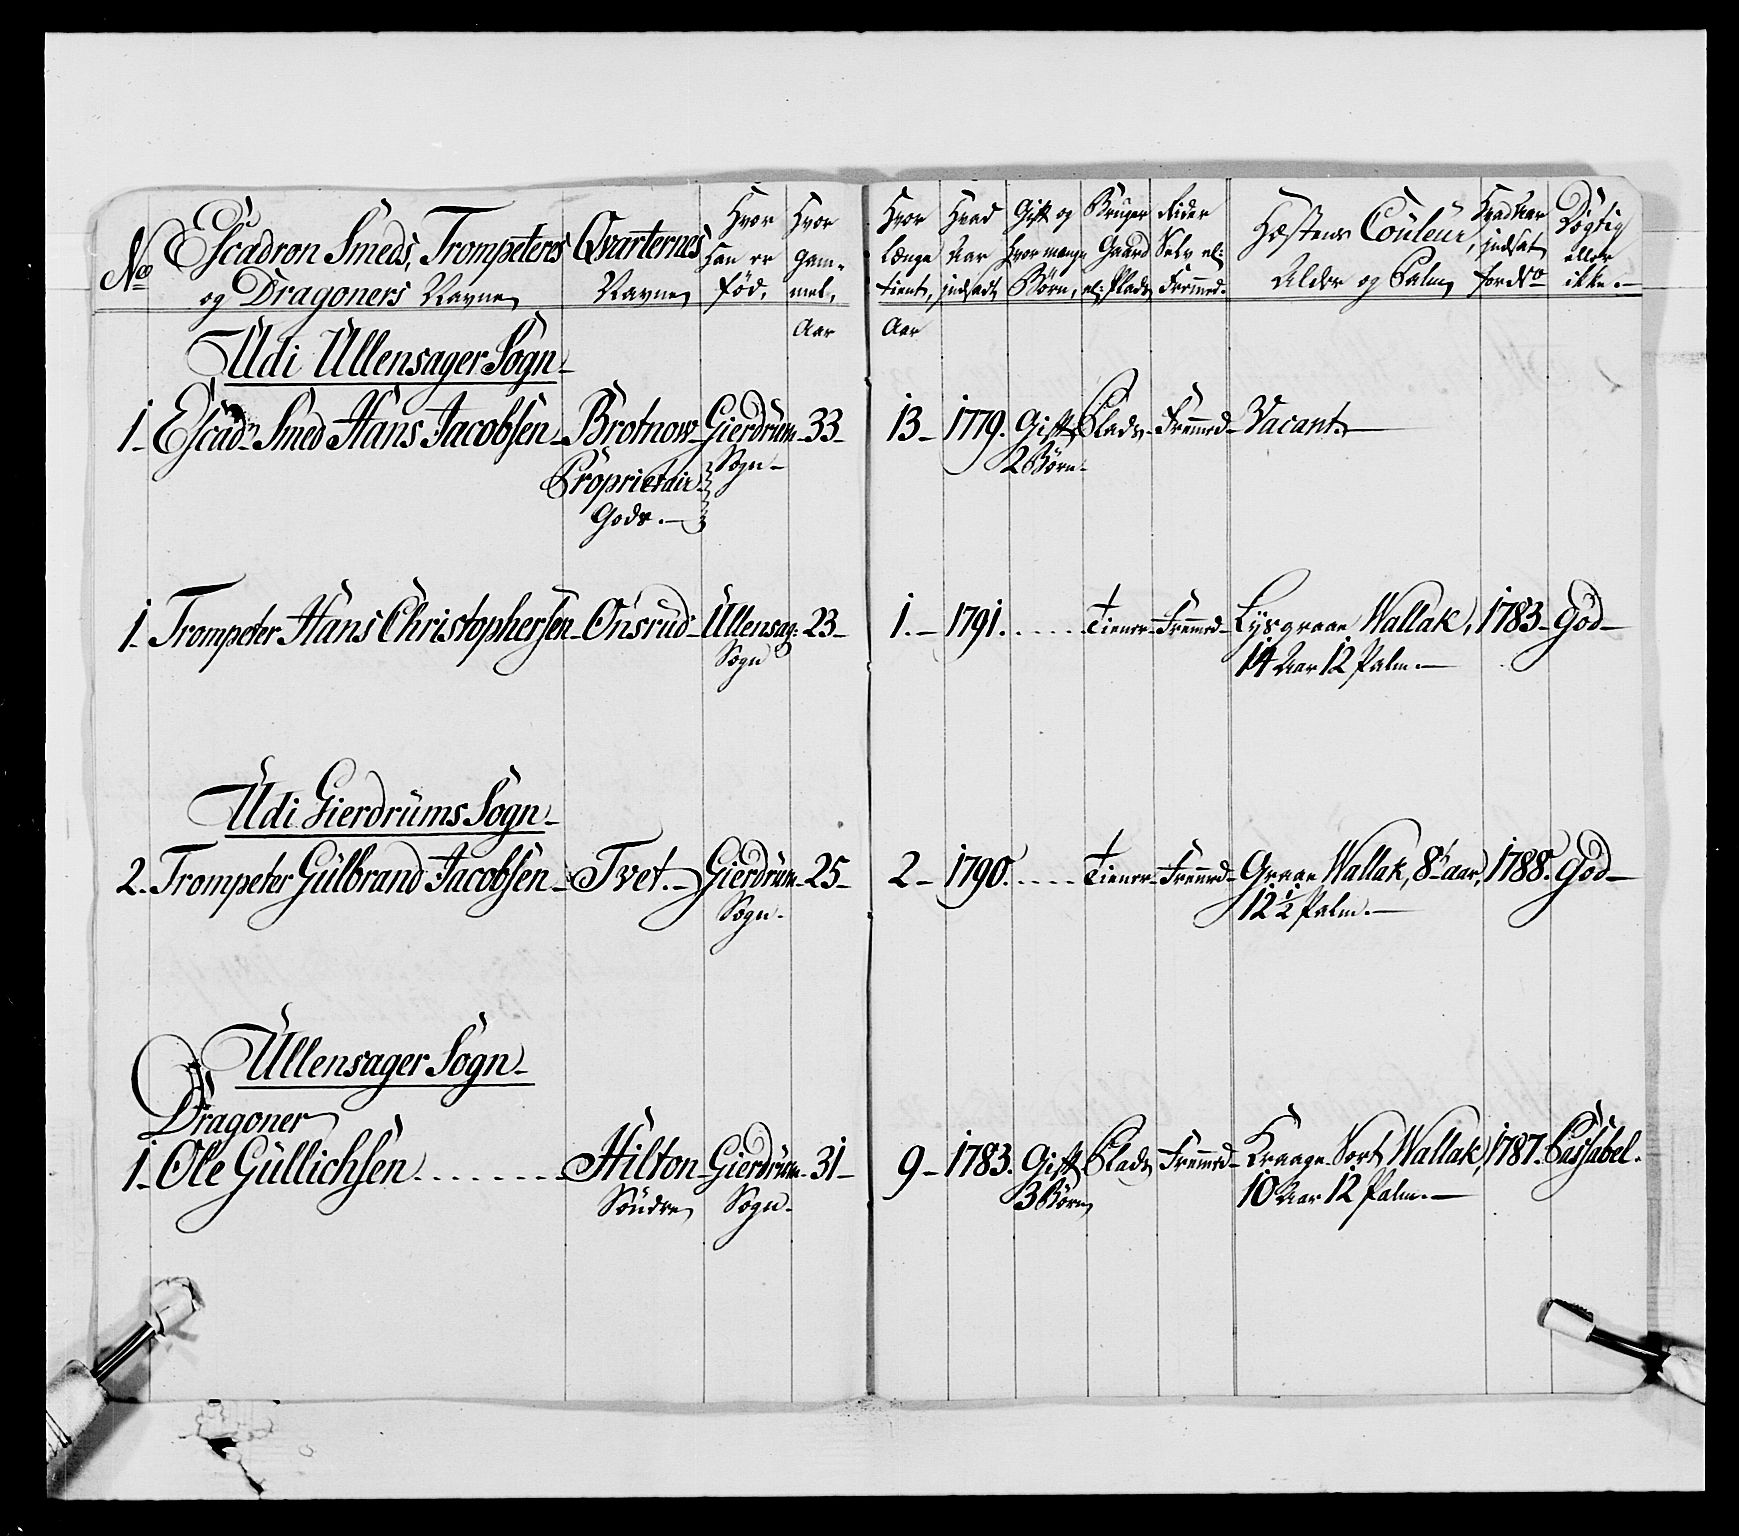 No Escadron Smeds, Trompeteres og Dragoners Navne | Qvarternes Navne | Hvor han er fød, | Hvor gam- mel, | Hvor længe tient, | Hvad Aar indsadt | Gift og hvor mange Børn, | Bruger Gaard el: Plads | Rider Selv el: Fremed. | Hæstens Couleur, Alder og Palm | Hvad Aar indsat | Dögtig eller ikke.-
Aar | Aar
Udi Ullensager Sogn-
1- Escadn Smed Hans Jacobsen- Brotnow- Gierdrum- 33- 13- 1779. Gift Plads- Fremed- Vacant.-
Proprietair- Sogn- 2 Börn-
Gods.-
1- Trompeter Hans Christophersen- Onsrud- Ullensag: 23- 1.- 1791. ..... Tiener- Fremed- Lysgraae Wallak, 1783- God-
Sogn 14 Aar 12 Palm.-
Udi Gierdrums Sogn-
2. Trompeter Gulbrand Jacobsen- Tvet.- Gierdrum- 25- 2- 1790. .... Tiener- Fremed- Graae Wallak, 8- aar, 1788. God-
Sogn- 12 1/2 Palm.-
Ullensager Sogn-
Dragoner
1- Ole Gullichsen ........ Hilton- Gierdrum- 31- 9- 1783. Gift Plads Fremed- Kraage Sort Wallak, 1787. Passabel.
Söndre Sogn- 3 Börn 10 Aar 12 Palm.-